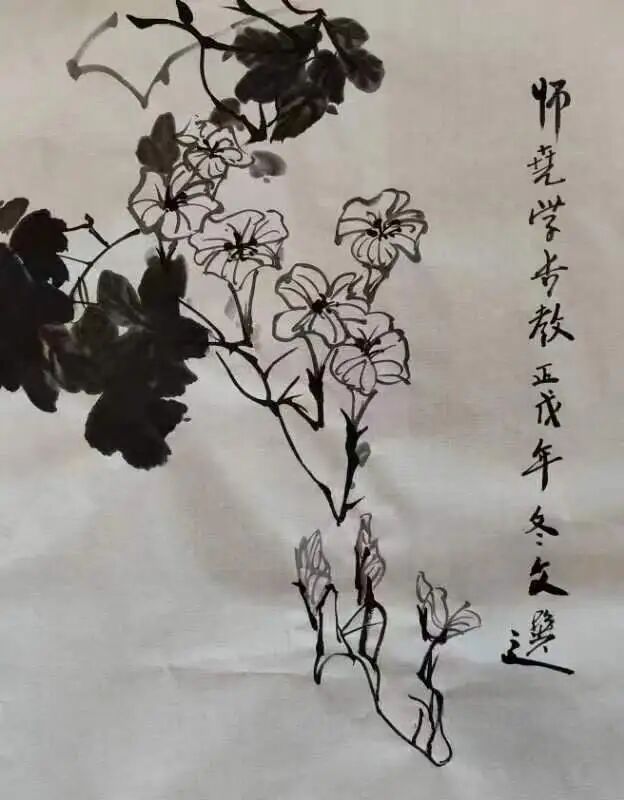 师尧学步教正戊年冬文選